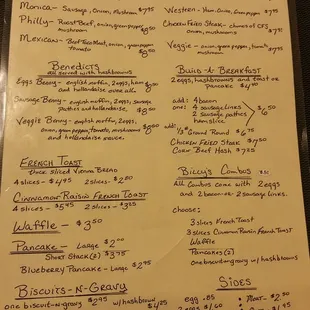 Monica - Sausage, Onion, Mushroom $7.95
Philly - Roast Beef, onion, green pepper,
mushroom $8.00
Mexican - Beef Taco Meat, onion, green pepper,
tomato $8.00
Benedicts
all served with hashbrowns
Eggs Benny - english muffin, 2 eggs, ham
and hollandaise over all.
Sausage Benny - english muffin, 2 eggs, sausage
patties and hollandaise.
Veggie Benny - english muffin, 2 eggs,
onion, green pepper, tomato, mushrooms
and hollandaise sauce.
French Toast
thick sliced Vienna Bread
4 slices - $4.95 2 slices -
Cinnamon Raisin French Toast
4 slices - $5.45 2 slices - $3.25
Waffle - $3.50
Pancake - Large $2.00
Short Stack (2) $3.75
Blueberry Pancake - Large $2.75
Biscuits-N-Gravy
one biscuit-n-gravy $2.95 w/ hashbrowns $4.25
Western - Ham, Onion, Green pepper $7.95
Chicken Fried Steak - chunks of CFS
onion, mushrooms
Veggie - onion, green pepper, tomato,
mushroom
Build-A-Breakfast
2 eggs, hashbrowns and toast or
pancake $4.00
add: 4 bacon
or: 4 sausage lines
2 sausage patties
ham slice
$6.50
add:
1/3# Ground Round $6.75
Chicken Fried Steak $7.50
Corn Beef Hash $7.35
Billy's Combos
All combos come with 2 eggs
and 2 bacon or 2 sausage lines.
choose:
3 slices French Toast
3 slices Cinnamon Raisin French Toast
Waffle
Pancakes (2)
one biscuit-n-gravy w/ hashbrowns
Sides
egg .85